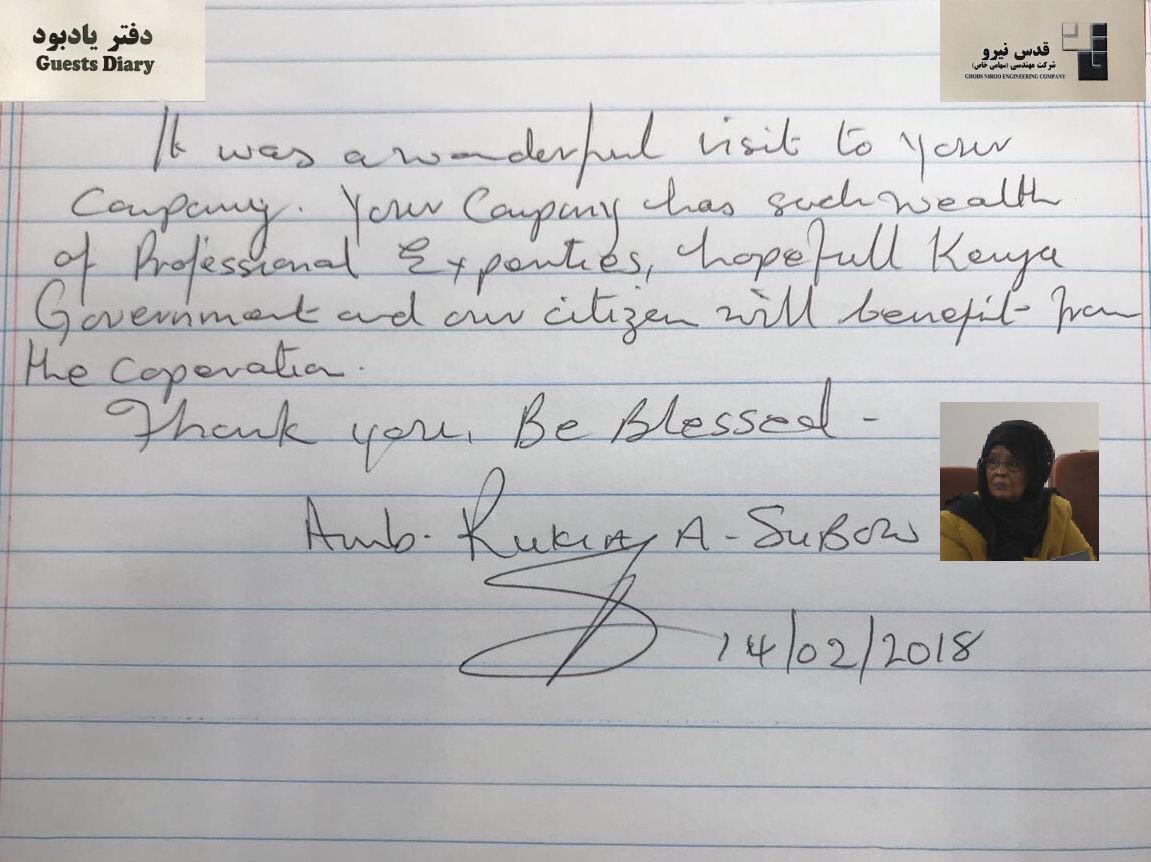 دفتر یادبود
Guests Diary
قدس نیرو
شرکت مهندسی (سهامی خاص)
GHODS NIROO ENGINEERING COMPANY
It was a wonderful visit to your
Company. Your Company has such wealth
of Professional Experties, hopefull Kenya
Government and our citizen will benefit from
the Coperation.
Thank you, Be Blessed -
Amb. Rukia A - SuBow
14/02/2018